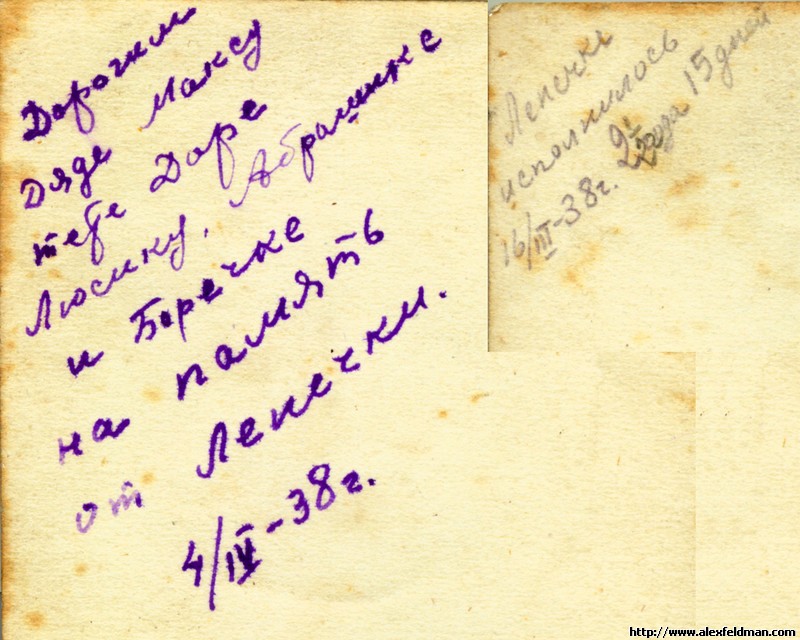 Дорогим
Дяде Максу
тебе Доре
Люсику, Абрашике
и Боречке
на память
от Лепечки.
4/IV-38г.
Лепечке
исполнилось
2 года 15 дней
16/III-38г.
http://www.alexfeldman.com